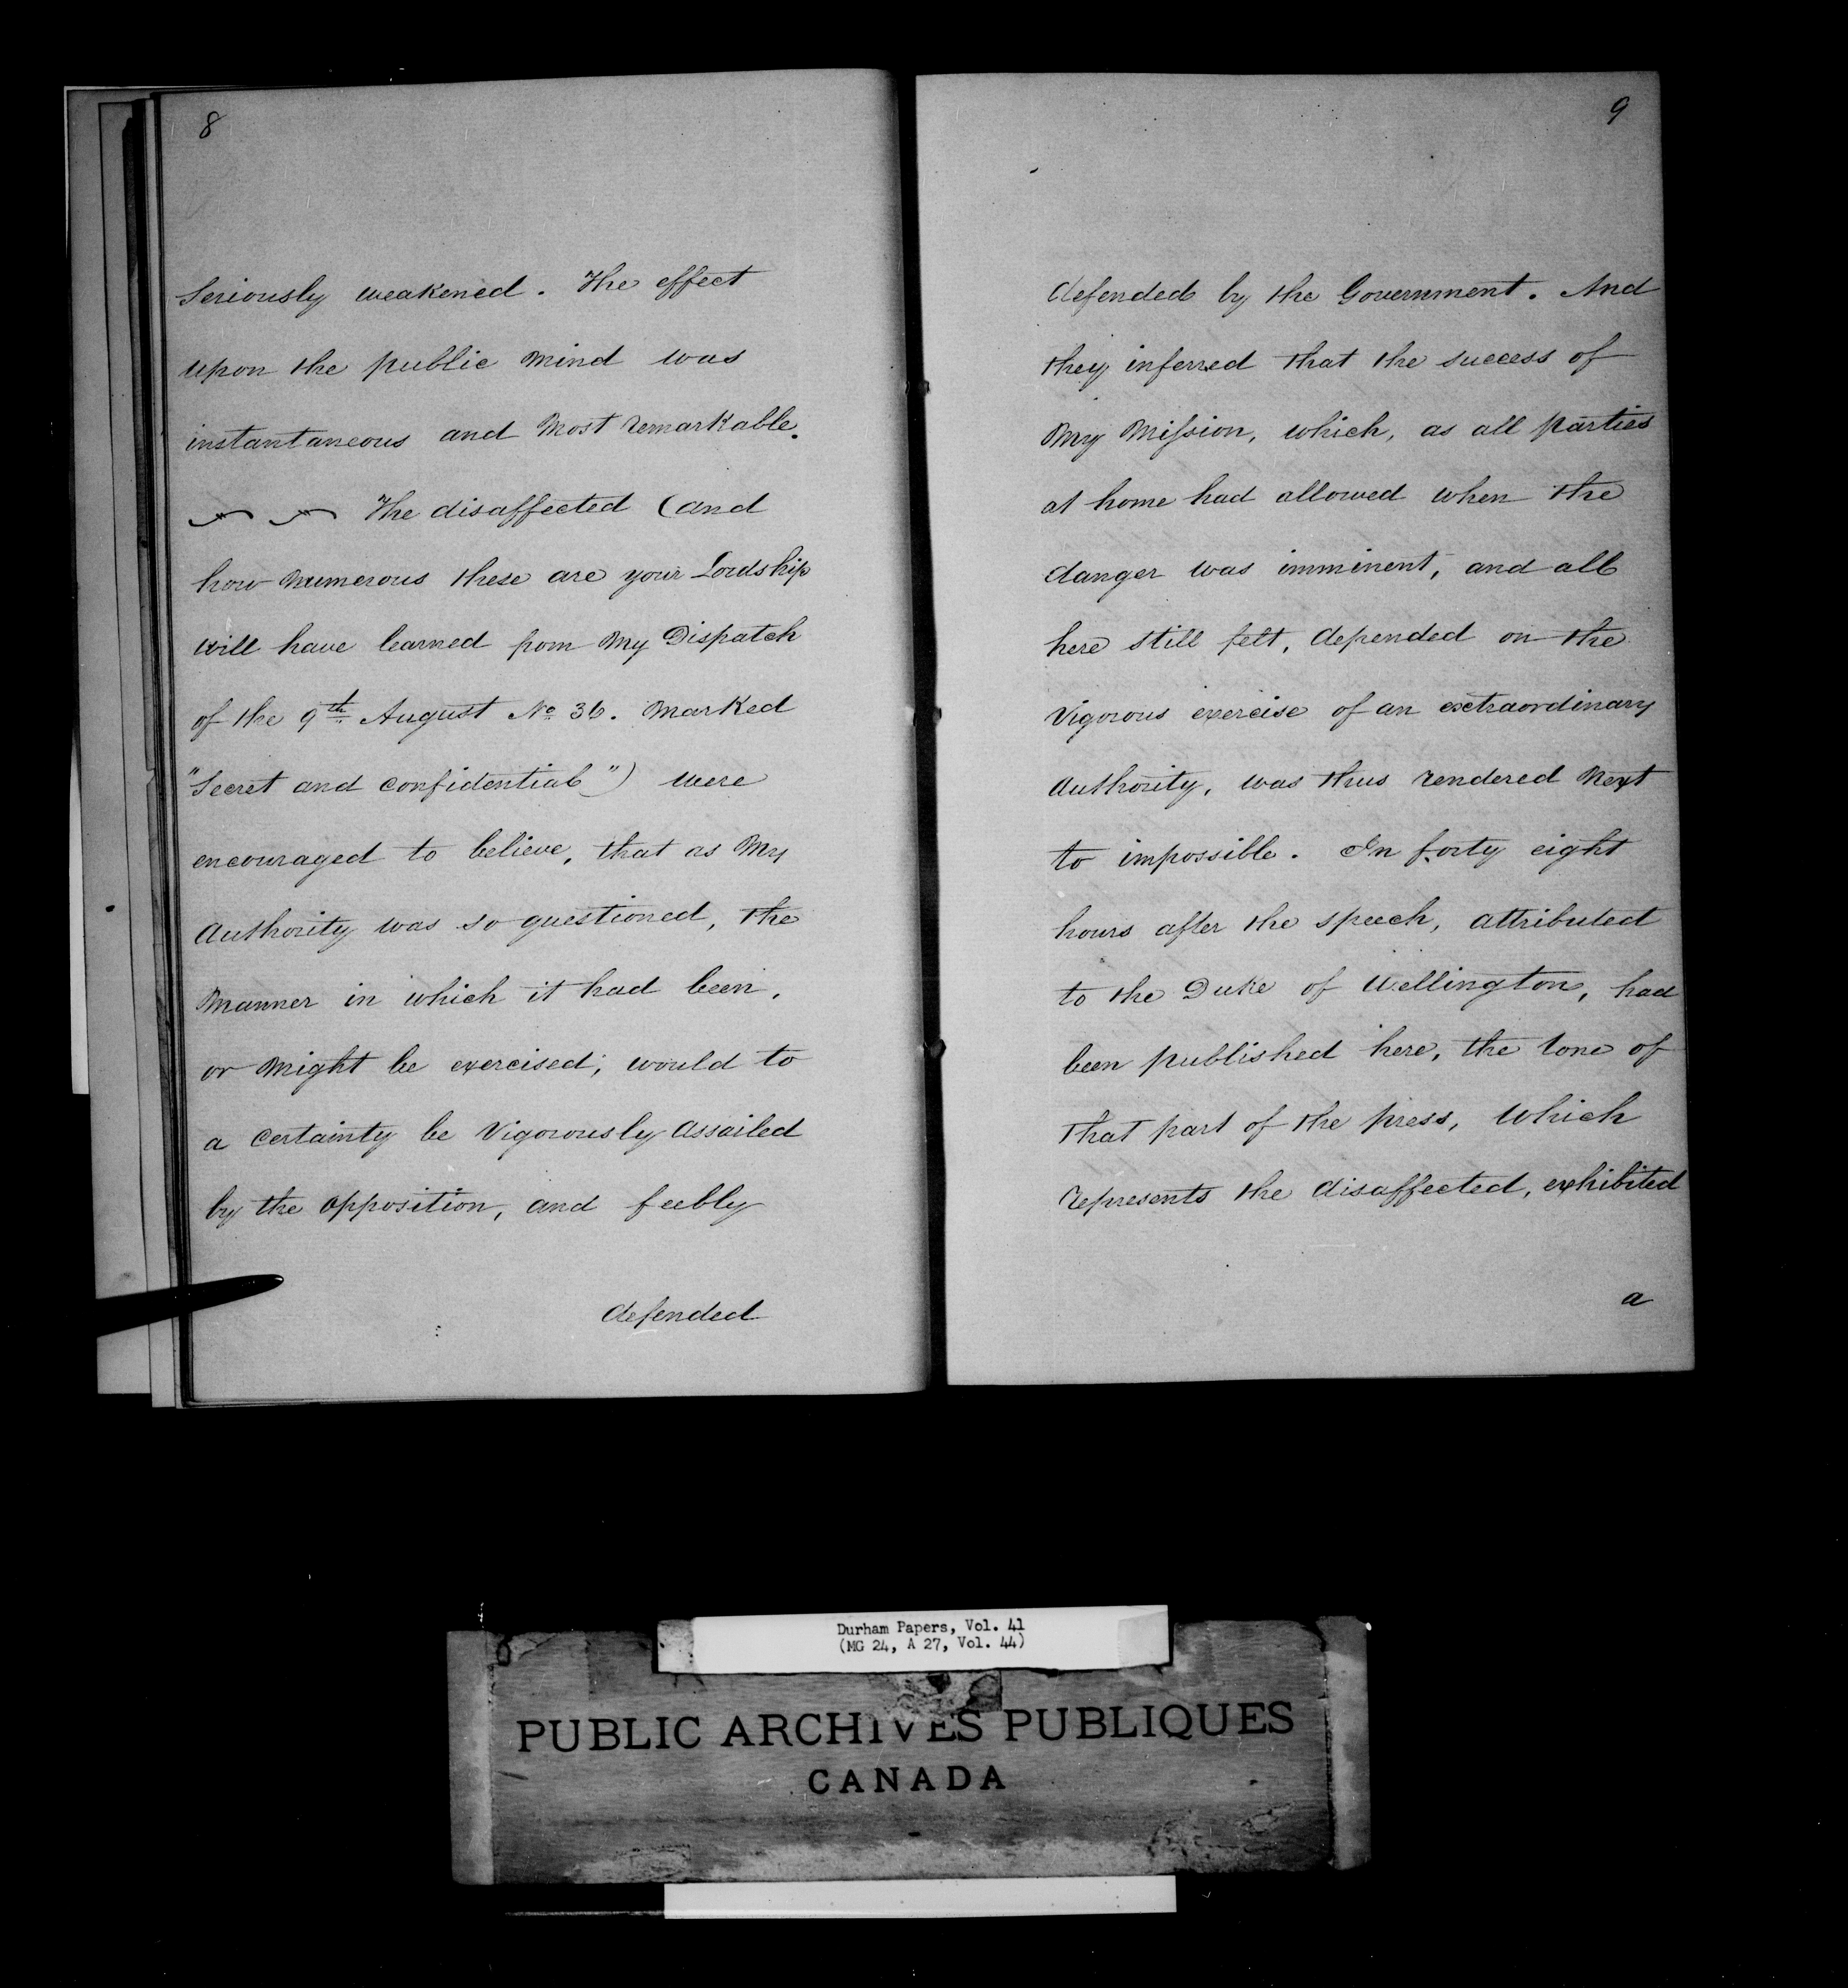 8
Seriously weakened. The effect
upon the public Mind was
instantaneous and Most remarkable.
The disaffected (and
how numerous these are your Lordship
will have learned from My Dispatch
of the 9th August No 36. Marked
"Secret and Confidential") were
encouraged to believe, that as My
Authority was so questioned, the
Manner in which it had been,
or Might be exercised; would to
a Certainty be Vigorously Assailed
by the Opposition, and feebly
defended
9
defended by the Government. And
they inferred that the success of
My Mission, which, as all parties
at home had allowed when the
danger was imminent, and all
here still felt, depended on the
Vigorous exercise of an extraordinary
Authority, was thus rendered Next
to impossible. In forty eight
hours after the speech, attributed
to the Duke of Wellington, had
been published here, the tone of
that part of the press, which
represents the disaffected, exhibited
a
Durham Papers, Vol. 41
(MG 24, A 27, Vol. 44)
PUBLIC ARCHIVES PUBLIQUES
CANADA